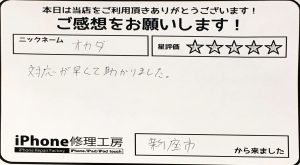 本日は当店をご利用頂きありがとうございます！
ご感想をお願いします！
ニックネーム オカダ
星評価 ☆☆☆☆☆
対応が早くて助かりました。
iPhone修理工房
iPhone Repair Factory iPhone/iPad/iPod touch
新座市 から来ました